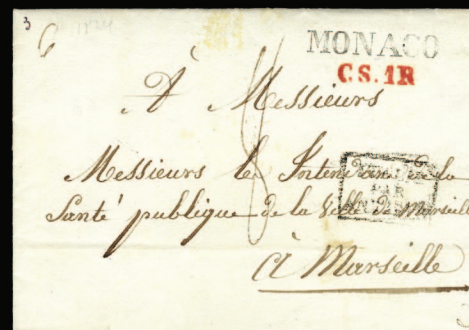 3
6
MONACO
C.S.1R
À Messieurs
Messieurs les Intendants de la
Santé publique de la Ville de Marseille
À Marseille